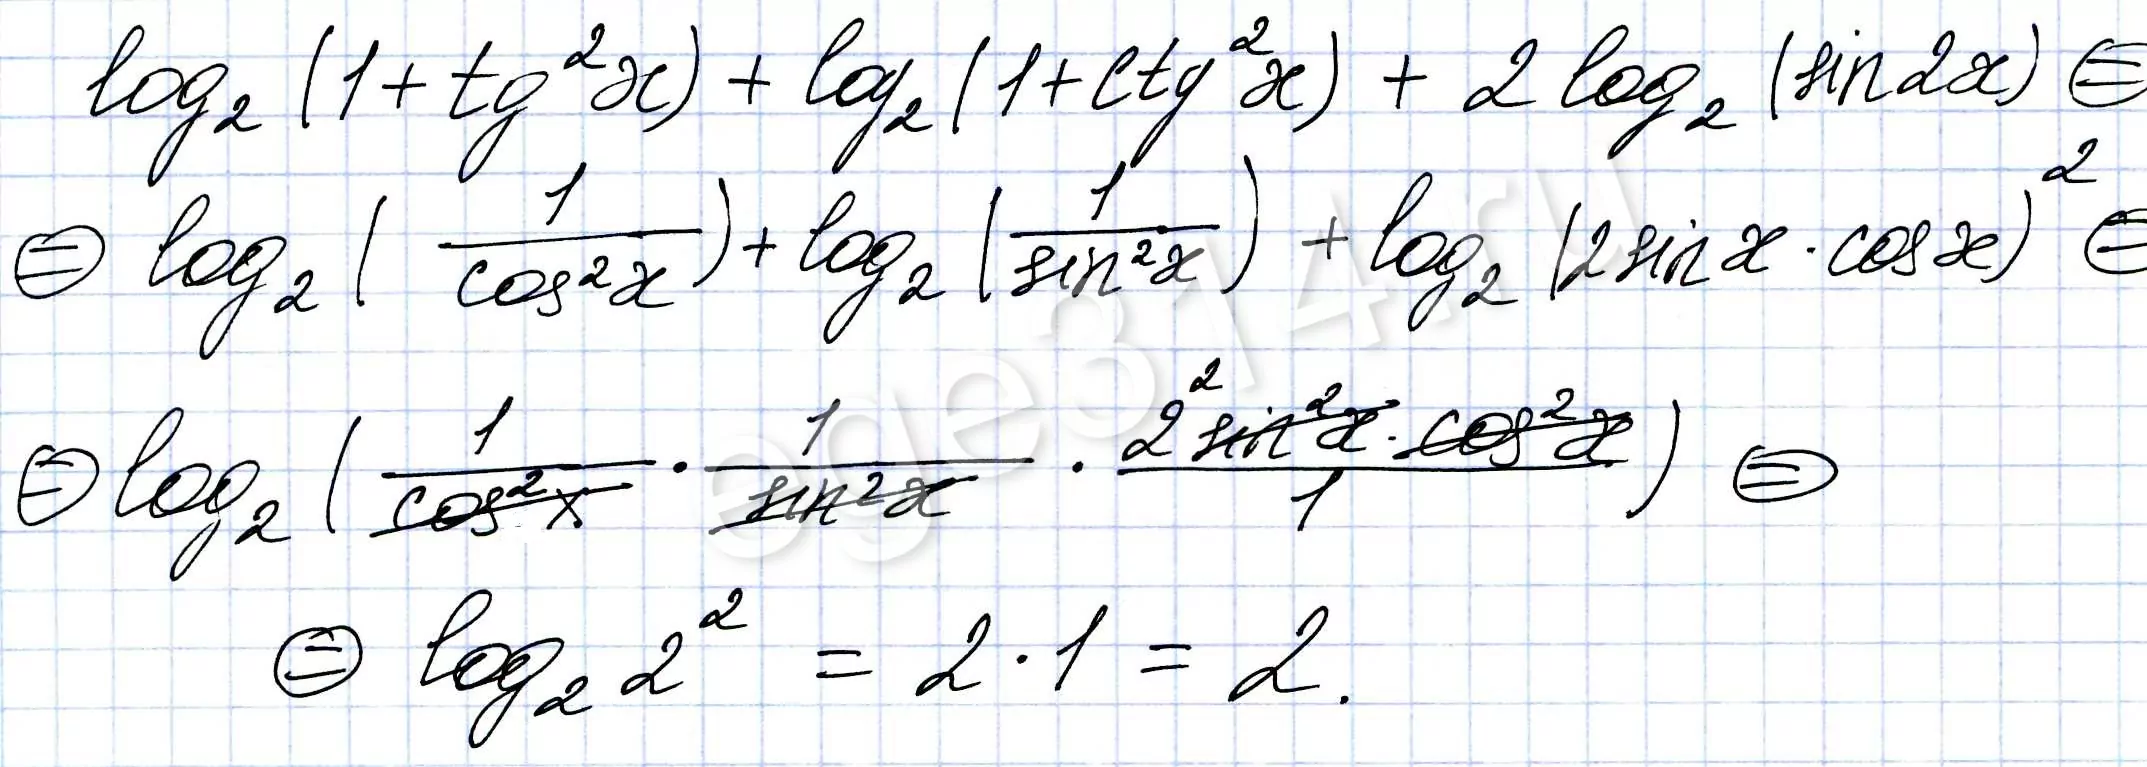 log₂(1+tg²x)+log₂(1+ctg²x)+2log₂(sin2x) ⊜
⊜ log₂(1/cos²x)+log₂(1/sin²x)+log₂(2sinx·cosx)² ⊜
⊜ log₂(1/cos²x · 1/sin²x · 2²sin²x·cos²x/1) ⊜
⊜ log₂2² = 2·1 = 2.
ege314.ru